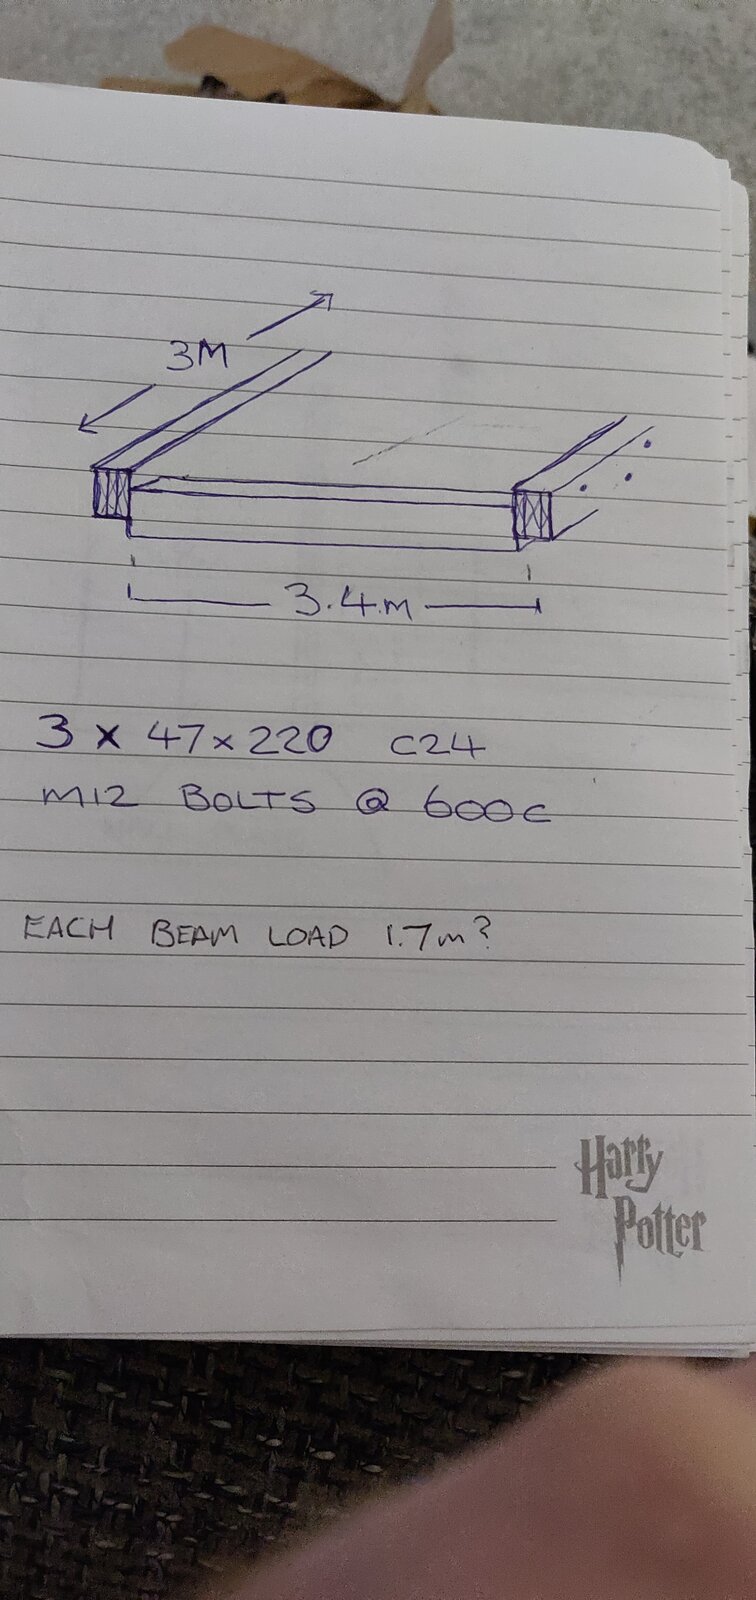 3M
3.4m
3 x 47x220 C24
M12 BOLTS @ 600c
EACH BEAM LOAD 1.7m?
Harry
Potter